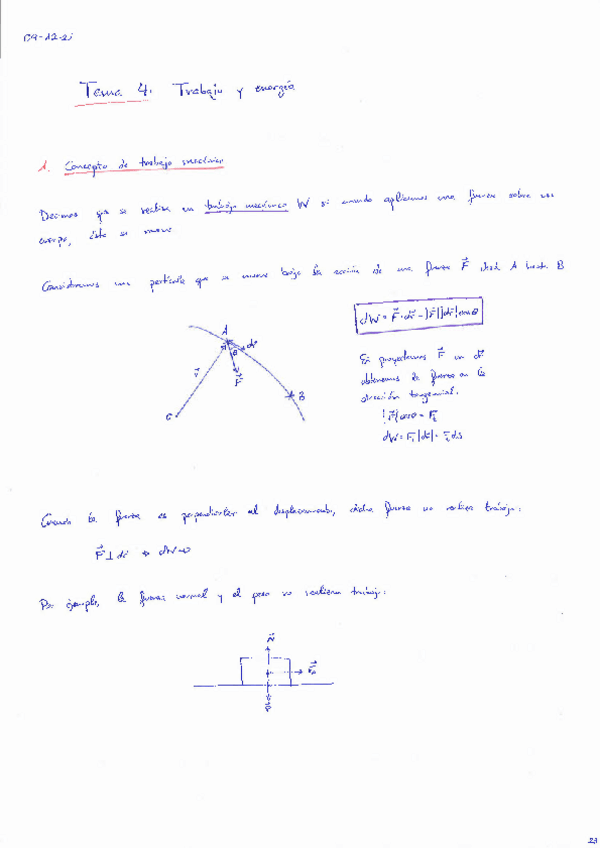 09-12-21
Tema 4. Trabajo y energía
1. Concepto de trabajo mecánico
Decimos que se realiza un trabajo mecánico W si cuando aplicamos una fuerza sobre un
cuerpo, éste se mueve
Consideramos una partícula que se mueve bajo la acción de una fuerza F⃗ desde A hasta B
A
dr⃗
θ
r⃗
F⃗
B
O
dW = F⃗·dr⃗ = |F⃗||dr⃗|cosθ
Si proyectamos F⃗ en dr⃗
obtenemos la fuerza en la
dirección tangencial.
|F⃗|cosθ = Ft
dW = Ft|dr⃗| = Ft ds
Cuando la fuerza es perpendicular al desplazamiento, dicha fuerza no realiza trabajo:
F⃗ ⊥ dr⃗ ⇒ dW=0
Por ejemplo, la fuerza normal y el peso no realizan trabajo:
N⃗
P⃗